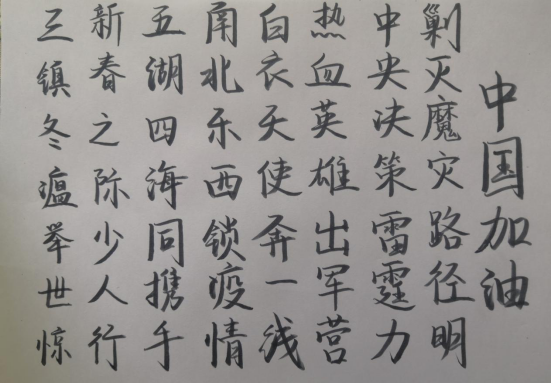 三镇冬瘟举世惊
新春之际少人行
五湖四海同携手
南北东西锁疫情
白衣天使奔一线
热血英雄出军营
中央决策雷霆力
剿灭魔灾路径明
中国加油